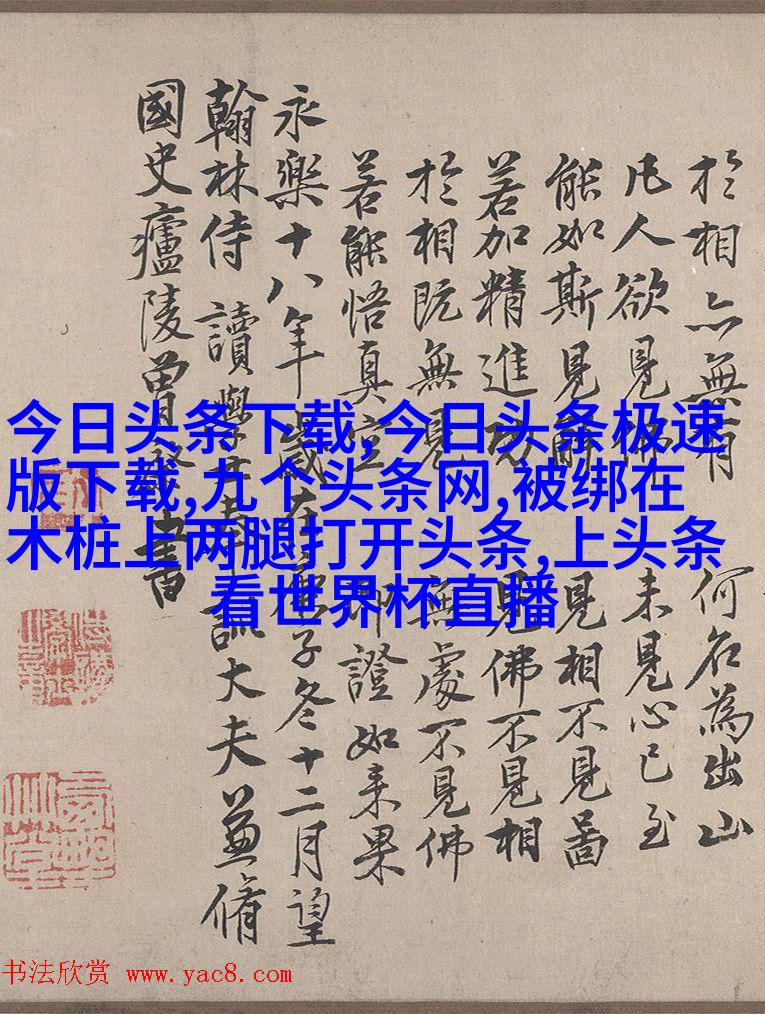 於相亦無有 何名為出山
凡人欲見佛 未見心已至
能如斯見解 見相不見啚
若加精進功 見佛不見相
於相既無見 無處不見佛
若能悟真空 即證如来果
永樂十八年歲在庚子冬十二月望
翰林侍讀學士奉訓大夫兼脩
國史廬陵曾棨書
今日头条下载,今日头条极速
版下载,九个头条网,被绑在
木桩上两腿打开头条,上头条
看世界杯直播
书法欣赏 www.yac8.com